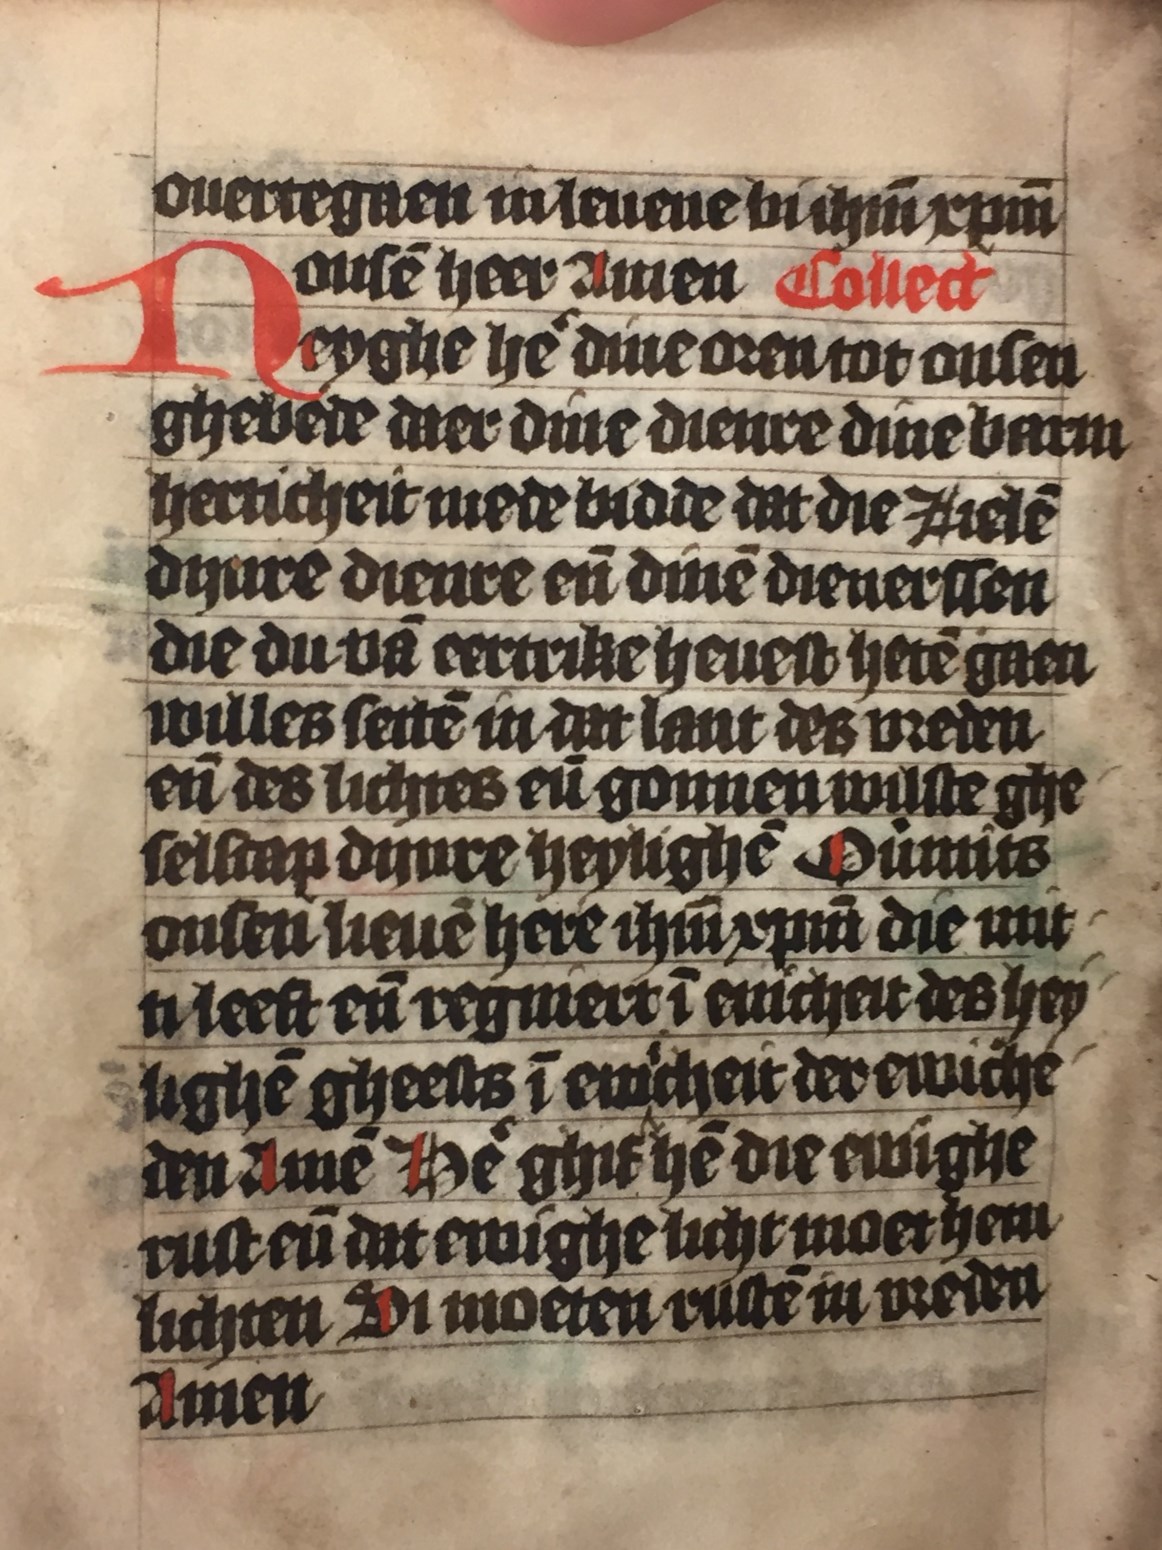 ouertegaen in leuene bi ihm̄ xpm̄
onsē heer Amen Collect
Neyghe hē dine oren tot onsen
ghebede daer dine dienre dine barm
herticheit mede bidde dat die Zielē
dijnre dienre en̄ dinē dienerssen
die du vā eertrike heuest hetē gaen
willes settē in dat lant des vreden
en̄ des lichtes en̄ gonnen wilste ghe
selscap dijnre heylighē Ouermits
onsen lieuē here ihm̄ xpm̄ die mit
ti leeft en̄ regniert ī enicheit des hey
lighē gheests ī ewicheit der ewiche
den Amē Hē ghif hē die ewighe
rust en̄ dat ewighe licht moet hem
lichten Si moeten rustē in vreden
Amen